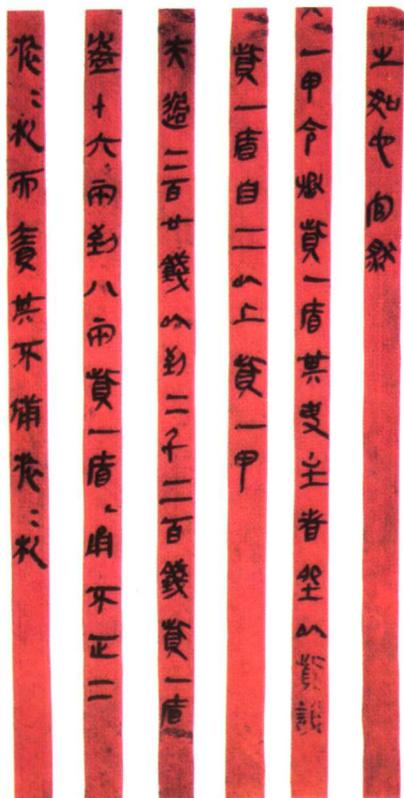 之如它官然
一甲令丞貲一盾其吏主者坐以貲誶
貲一盾自二以上貲一甲
夫過二百廿錢以到二千二百錢貲一盾
盈十六兩到八兩貲一盾甬不正二
而責其不備